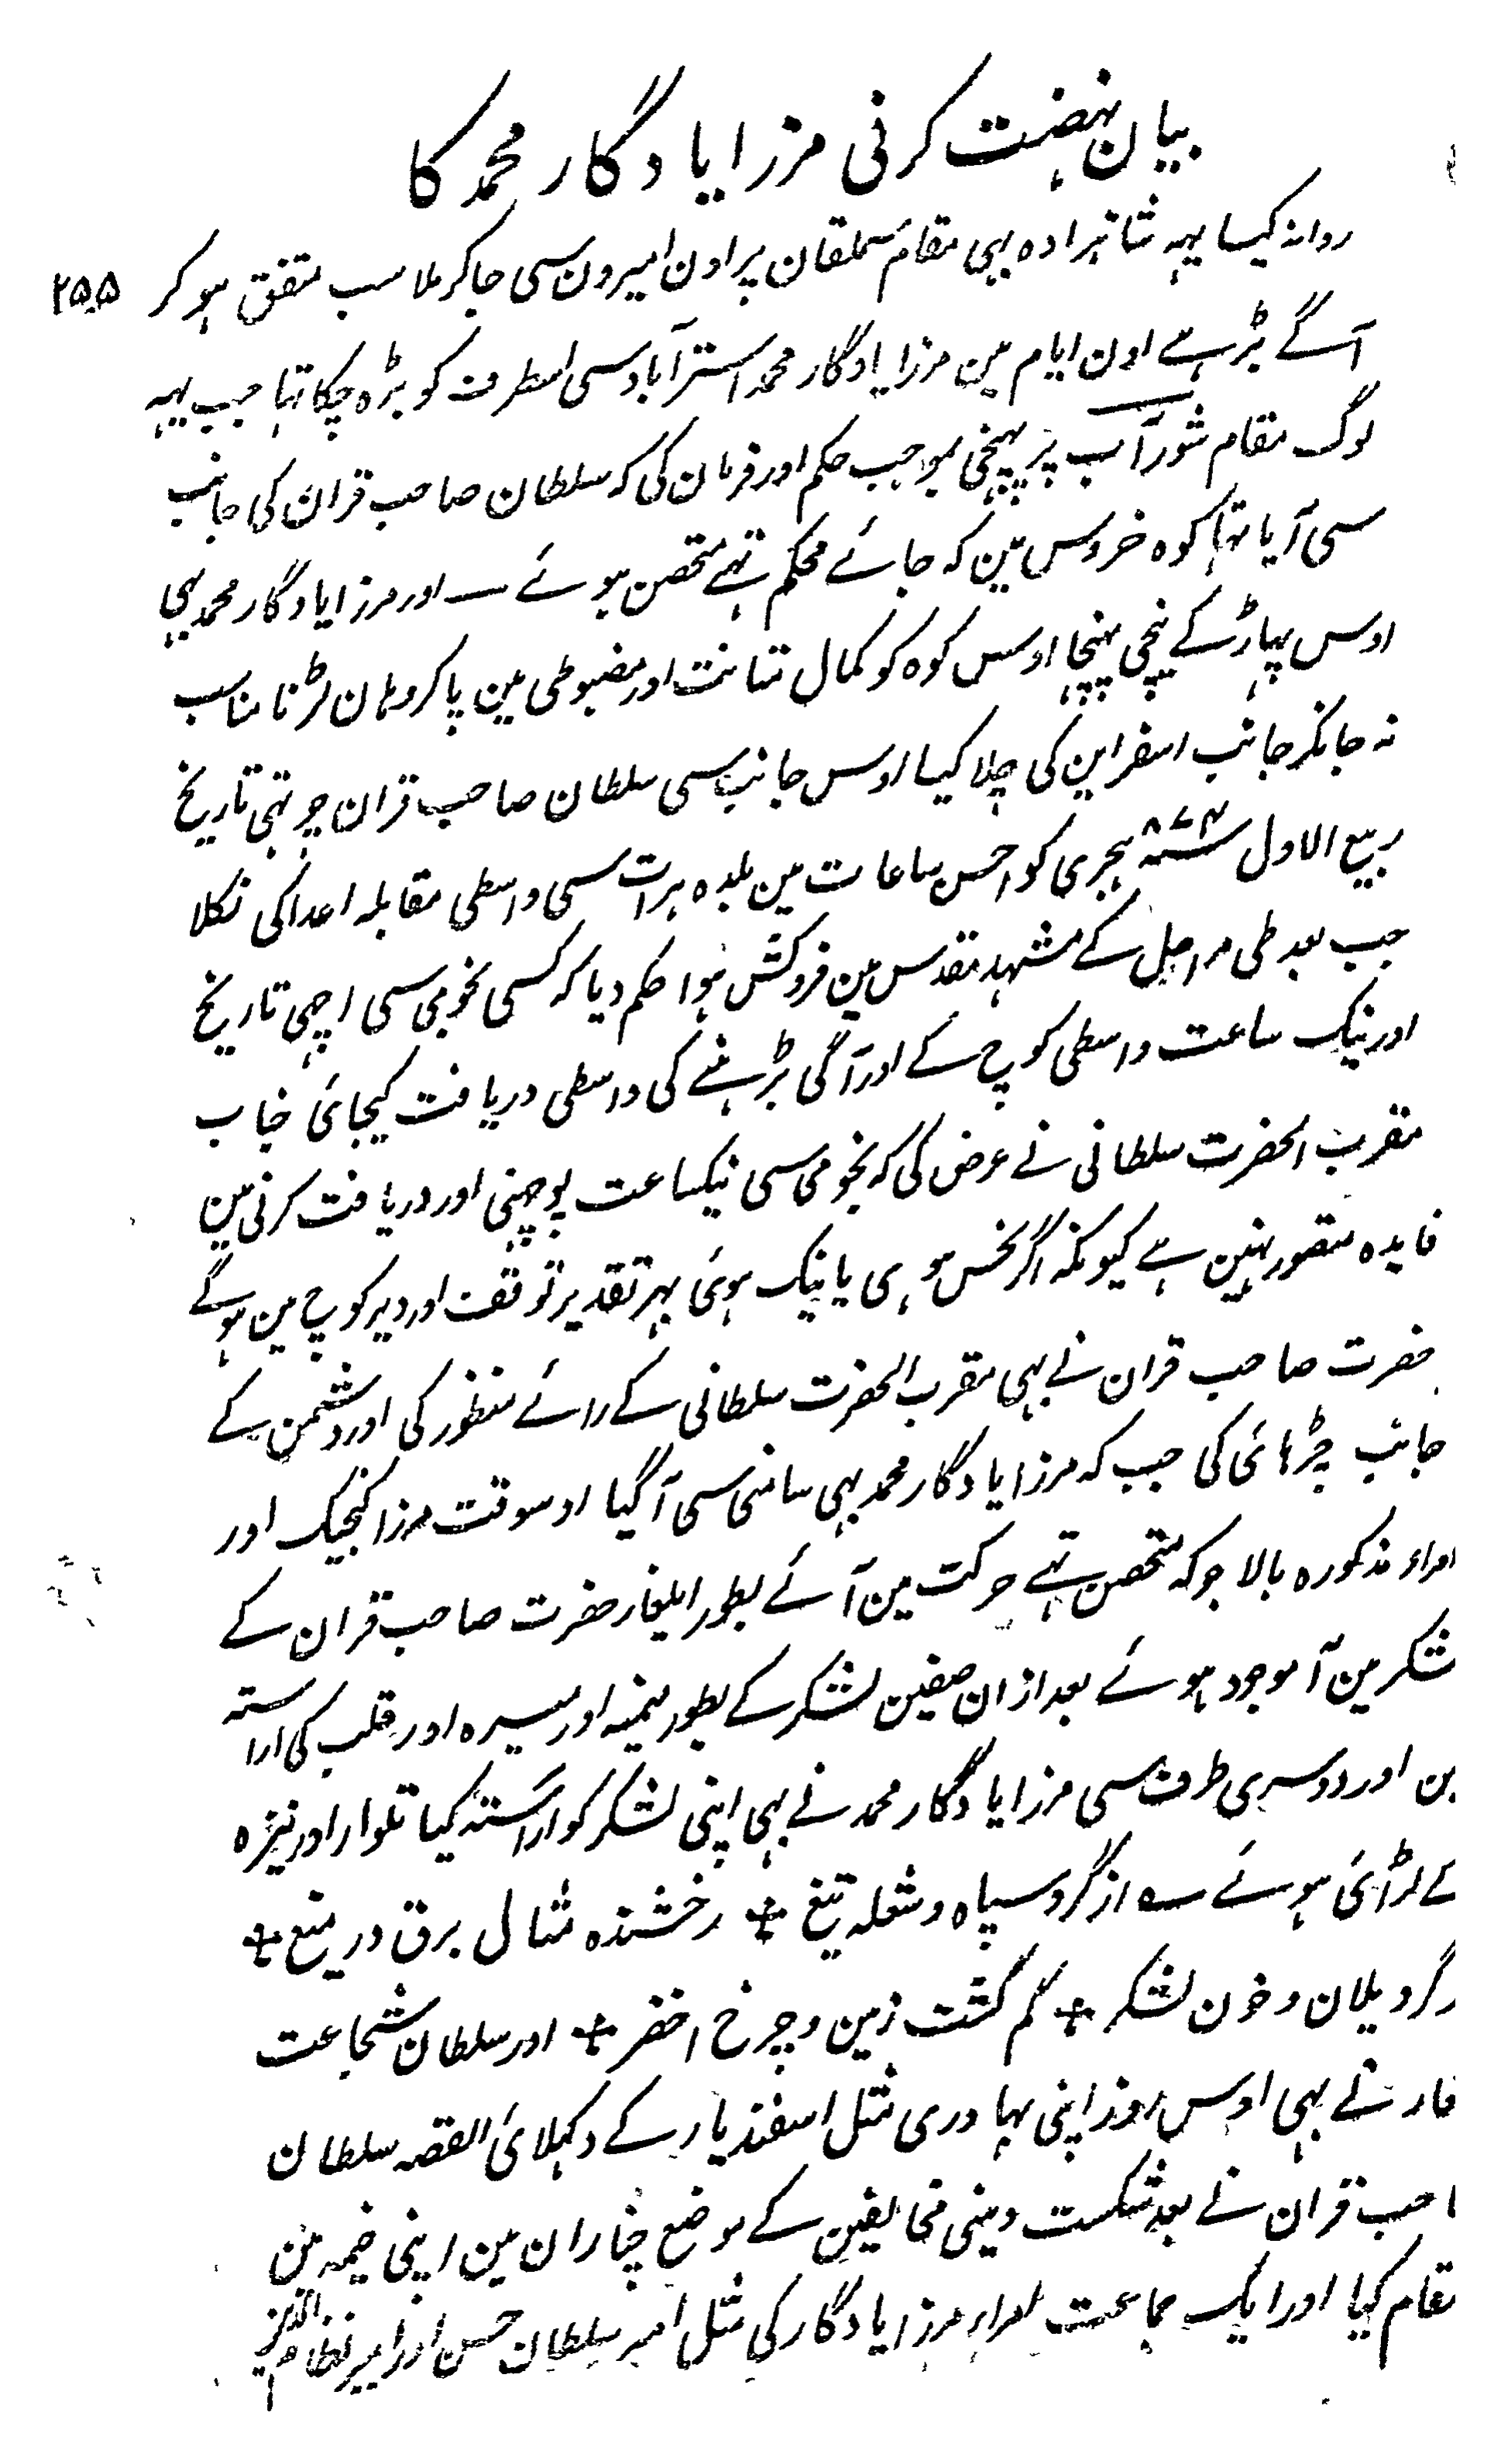 بیان نہضت کرنی مرزا یادگار محمد کا
۲۵۵
روانہ کیا یہہ شاہزادہ بہی مقام سملقان پر اون امیرون سی جا کر ملا سب متفق ہو کر
آگے بڑہے اون ایام مین مرزا یادگار محمد استرآباد سی اسطرف کو بڑہ چکا تہا جب یہہ
لوگ مقام شورآب پر پہنچی بموجب حکم اور فرمان کی کہ سلطان صاحب قران کی جانب
سی آیا تہا کوہ خروس مین کہ جائے محکم تہے متحصن ہوئے — اور مرزا یادگار محمد بہی
اوس پہاڑ کے نیچی پہنچا اوس کوہ کو کمال متانت اور مضبوطی مین پا کر وہان لڑنا مناسب
نہ جانکر جانب اسفراین کی چلا گیا اوس جانب سی سلطان صاحب قران چوتہی تاریخ
ربیع الاول سنہ ۸۷۴ ہجری کو احسن ساعات مین بلدہ ہرات سی واسطی مقابلہ اعدا کی نکلا
جب بعد طی مراحل کے مشہد مقدس مین فروکش ہوا حکم دیا کہ کسی نجومی سی اچہی تاریخ
اور نیک ساعت واسطی کوچ کے اور آگی بڑہنے کی واسطی دریافت کیجائی جناب
مقرب الحضرت سلطانی نے عرض کی کہ نجومی سی نیکساعت پوچہنی اور دریافت کرنی مین
فایدہ متصور نہین ہے کیونکہ اگر نحس ہوی یا نیک ہوئی بہر تقدیر توقف اور دیر کوچ مین ہوگے
حضرت صاحب قران نے بہی مقرب الحضرت سلطانی کے رائے منظور کی اور دشمن کے
جانب چڑہائی کی جب کہ مرزا یادگار محمد بہی سامنی سی آگیا اوسوقت مرزا کیجیک اور
امراء مذکورہ بالا جو کہ متحصن تہے حرکت مین آئے بطور ایلغار حضرت صاحب قران کے
شکر مین آ موجود ہوئے بعد ازان صفین لشکر کے بطور میمنہ اور میسرہ اور قلب کی اراستہ
ین اور دوسری طرف سی مرزا یادگار محمد نے بہی اپنی لشکر کو اراستہ کیا تلوار اور نیزہ
کے لڑائی ہوئے ؎ از گرد سپاہ و شعلہ تیغ ٭ رخشندہ مثال برق در میغ ٭
زگرد یلان و خون لشکر ٭ گم گشت زمین و چرخ اخضر ٭ اور سلطان شجاعت
قار نے بہی اوس روز اپنی بہادری مثل اسفندیار کے دکہلائی القصہ سلطان
احب قران نے بعد شکست دینی مخالفین کے موضع چناران مین اپنی خیمہ مین
مقام کیا اور ایک جماعت امراء مرزا یادگار کی مثل امیر سلطان حسن اور امیر نظام الدین